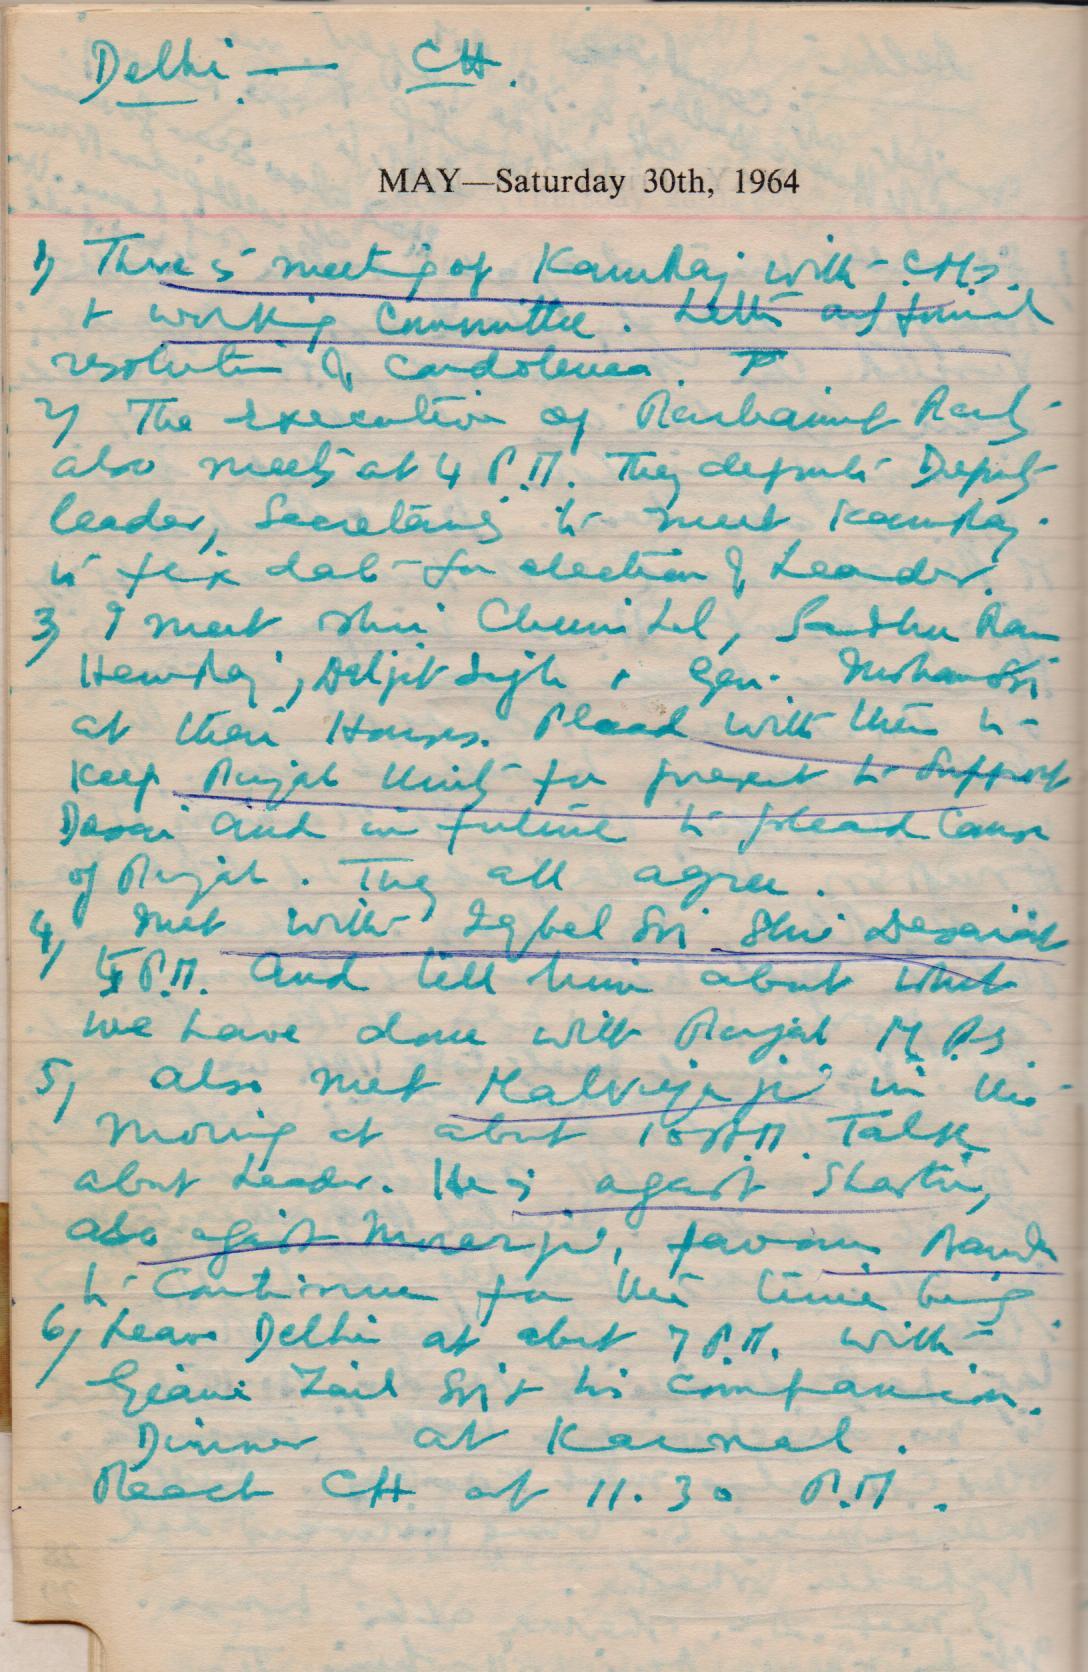 Delhi — CH.
MAY—Saturday 30th, 1964
1, There is meeting of KamRaj with CMs.
+ working Committee.
resolution of condolence.
2, The executive of Party
also meets at 4 P.M. They depute Deputy
leader, Secretaries to meet KamRaj.
to fix date for election of Leader.
3, I meet Shri Chuni Lal, Sadhu Ram
HemRaj, Diljit Singh + Gen. Mohan Sri
at their Houses. Plead with them to
keep Punjab Unit for present to Support
Desai and in future to plead Cause
of Punjab. They all agree.
4, Met with Iqbal Sri Shri Desai at
5 P.M. And tell him about what
we have done with Punjab M.P.s
5, also met Malviyaji in the
morning at about 10 A.M. Talk
about Leader. He is against Shastri,
also against Morarji, favours Nanda
to Continue for the time being.
6, Leave Delhi at abut 7 P.M. with
Giani Zail Sri + his companion.
Dinner at Karnal.
Reach CH at 11.30 P.M.